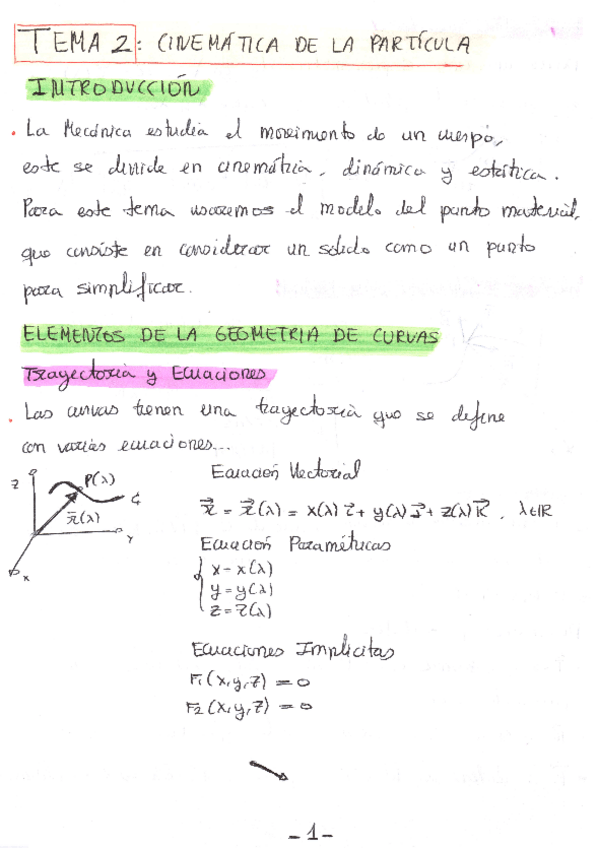 TEMA 2: CINEMÁTICA DE LA PARTÍCULA
INTRODUCCIÓN
. La Mecánica estudia el movimiento de un cuerpo,
este se divide en cinemática, dinámica y estática.
Para este tema usaremos el modelo del punto material,
que consiste en considerar un sólido como un punto
para simplificar.
ELEMENTOS DE LA GEOMETRIA DE CURVAS
Trayectoria y Ecuaciones
. Las curvas tienen una trayectoria que se define
con varias ecuaciones...
Ecuación Vectorial
z P(λ) C
r⃗(λ)
y
x
r⃗ = r⃗(λ) = x(λ) i⃗ + y(λ) j⃗ + z(λ) k⃗ , λ∈ℝ
Ecuación Paramétricas
x - x(λ)
y = y(λ)
z = z(λ)
Ecuaciones Implicitas
F1(x,y,z) = 0
F2(x,y,z) = 0
- 1 -